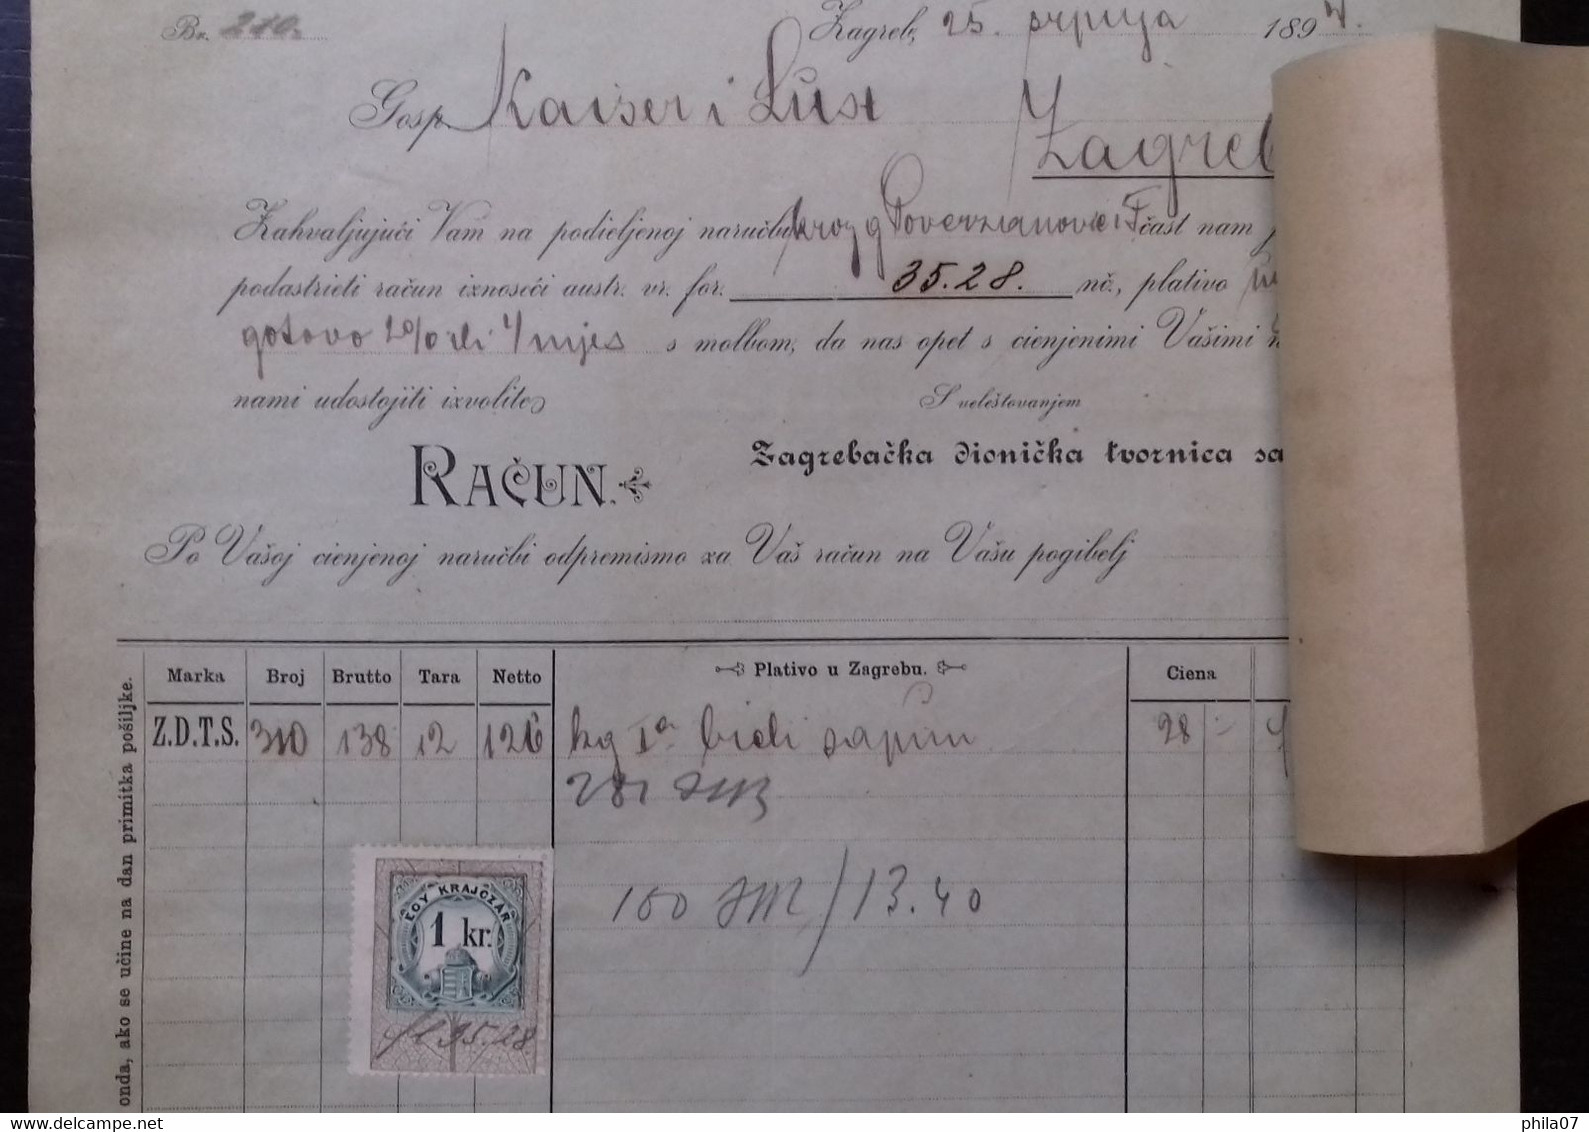 Br. 210.
Zagreb, 25. srpnja 1897.
Gosp. Kaiser i Lust
Zagreb
Zahvaljujući Vam na podieljenoj naručbi kroz g čast nam
podastrieti račun iznoseći austr. vr. for. 35.28. nč., plativo
gotovo 2% ili 4 mjes s molbom, da nas opet s cienjenimi Vašimi
nami udostojiti izvolite
S veleštovanjem
RAČUN.
Zagrebačka dionička tvornica sa
Po Vašoj cienjenoj naručbi odpremismo za Vaš račun na Vašu pogibelj
Marka Broj Brutto Tara Netto Plativo u Zagrebu. Ciena
Z.D.T.S. 310 138 12 126 kg Ia bieli sapun 28 -
100 /13.40
EGY KRAJCZÁR
1 kr.
fl 35.28.
onda, ako se učine na dan primitka pošiljke.
www.delcampe.net
phila07